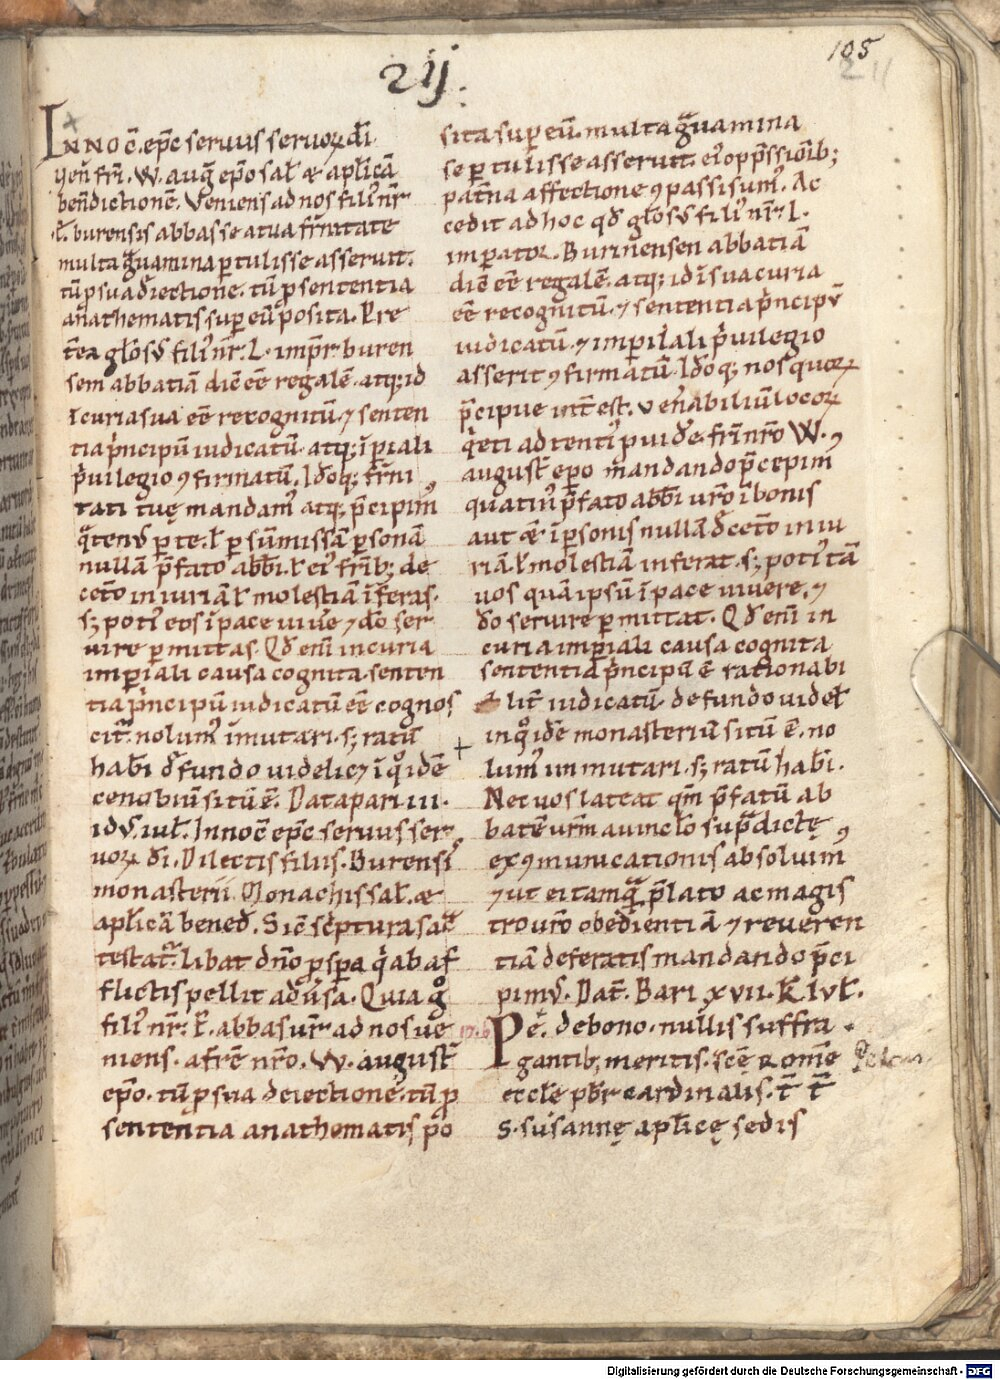 105
211
2ij.
Innoc̄. ep̄c seruus seruoꝝ dī
uen̄ fr̄i. W. auḡ ep̄o sal̄ & apl̄icā
ben̄dictionē. Veniens ad nos fili' nr̄
burensis abbas se a tua fr̄nitate
multa g̃uamina ꝑtulisse asseruit.
tū ꝓ sua d̄iectione. tū ꝓ sententia
anathematis suꝑ eū posita. Pre
t̄ea gl̄osꝰ fili' nr̄. L. impr̄ buren
sem abbatiā dic̄ ēē regalē. atq; id
ī curia sua ēē recognitū ⁊ senten
tia p̄ncipū iudicatū. atq; īꝑiali
p̄uilegio ꝯfirmatū. Id̄oq; fr̄ni
tati tuę mandam' atq; p̄cipim'
q̄tenꝰ ꝑ te. ł ꝑ sūmissā ꝑsonā
nullā p̄fato abb̄i. ł ei' fr̄ib; de
cet̄o iniuriā ł molestiā īferas.
s; poti' eos ī pace uiu'e ⁊ d̄o ser
uire ꝑmittas. Qd̄ enī in curia
imꝑiali causa cognita. senten
tia p̄ncipū iudicatū ēē cognos
cit̃. nolum' īmutari. s; ratū
hab̄i. d̄ fundo uidelic⁊ ī q̊ idē
cenobiū sitū ē. Data pari. iii.
idꝰ. iul̄. Innoc̄ ep̄c seruus ser
uoꝝ dī. Dilectis filiis. Burensis
monasterii Monachis sal̄. &
apl̄icā bened̄. Sic̄ sc̄ptura sac̃
testat̃. libat dn̄o ꝓspa q̄ ab af
flictis pellit aduersa. Quia g̊
fili' nr̄. E. abbas ur̄ ad nos ue
niens. a fr̄e nr̄o. W. august̄
ep̄o. tū ꝓ sua deiectione. tū ꝓ
sententia anathematis po
sita suꝑ eū. multa g̃uamina
se ꝑtulisse asseruit. ei' opp̄ssiōib;
pat̄na affectione ꝯpassi sum'. Ac
cedit ad hoc qd̄ gl̄osꝰ fili' nr̄. L.
imꝑatoꝛ. Burinensen abbatiā
dic̄ ēē regalē. atq; id ī sua curia
ēē recognitū. ⁊ sententia p̄ncipū
iudicatū. ⁊ imꝑiali p̄uilegio
asserit ꝯfirmatū. Id̄oq; nos quoꝝ
p̄cipue int̄est. uen̄abiliū locoꝝ
q̄eti adtenti' ꝓuid̄e. fr̄i nr̄o W.
august̄. ep̄o mandando p̄cepim'
quatin' p̄fato abb̄i ur̄o ī bonis
aut & ī ꝑsonis nullā d̄cet̄o iniu
riā. ł molestiā inferat. s; poti' tā
uos quā ipsū ī pace uiuere. ⁊
d̄o seruire ꝑmittat. Qd̄ enī in
curia imꝑiali causa cognita
sententia p̄ncipū ē rationabi
lit̄ iudicatū de fundo uidel̄
in q̊ idē monasteriū sitū ē. no
lum' inmutari. s; ratū hab̄i.
Nec uos lateat qm̄ p̄fatū ab
batē ur̄m a uinclo sup̃dictę
exꝯmunicationis absoluim'
⁊ ut ei tamq̃ p̄lato ac magis
tro ur̄o obedientiā ⁊ reueren
tiā deferatis mandando p̄ci
pimꝰ. Dat̄. Bari. xvii. kl̄. Ivl̄.
Pe. de bono. nullis suffra
gantib; meritis. sc̄ę Romę
eccl̄ę pb̄r cardinalis. t̄ t̄
S. susannę apl̄icę sedis